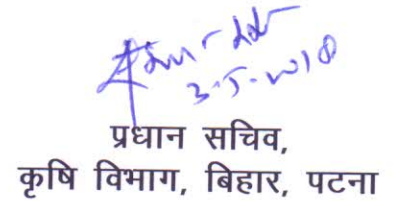 3.5.2018
प्रधान सचिव,
कृषि विभाग, बिहार, पटना